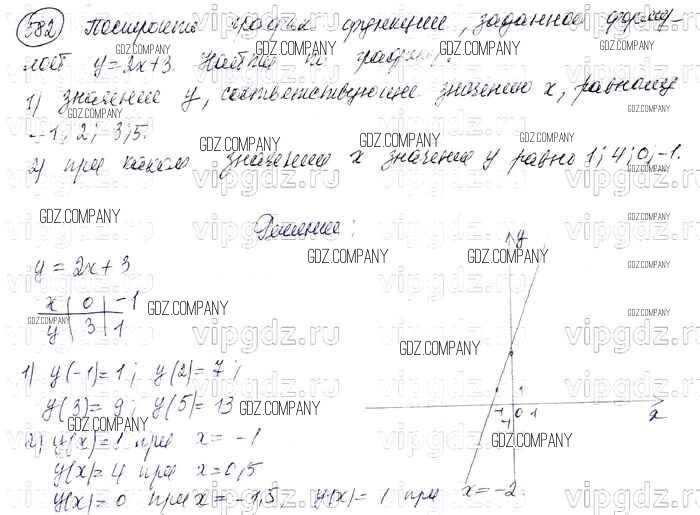 582 Построить график функции, заданной форму-
лой y=2x+3. Найти по графику:
1) значение y, соответствующее значению x, равному
-1; 2; 3; 5.
2) при каком значении x значение y равно 1; 4; 0; -1.
Решение:
y = 2x + 3
x 0 -1
y 3 1
1) y(-1)=1; y(2)=7;
y(3)=9; y(5)=13
2) y(x)=1 при x=-1
y(x)=4 при x=0,5
y(x)=0 при x=-1,5, y(x)=1 при x=-2.
y
1
-1 0 1 x
-1
GDZ.COMPANY
vipgdz.ru